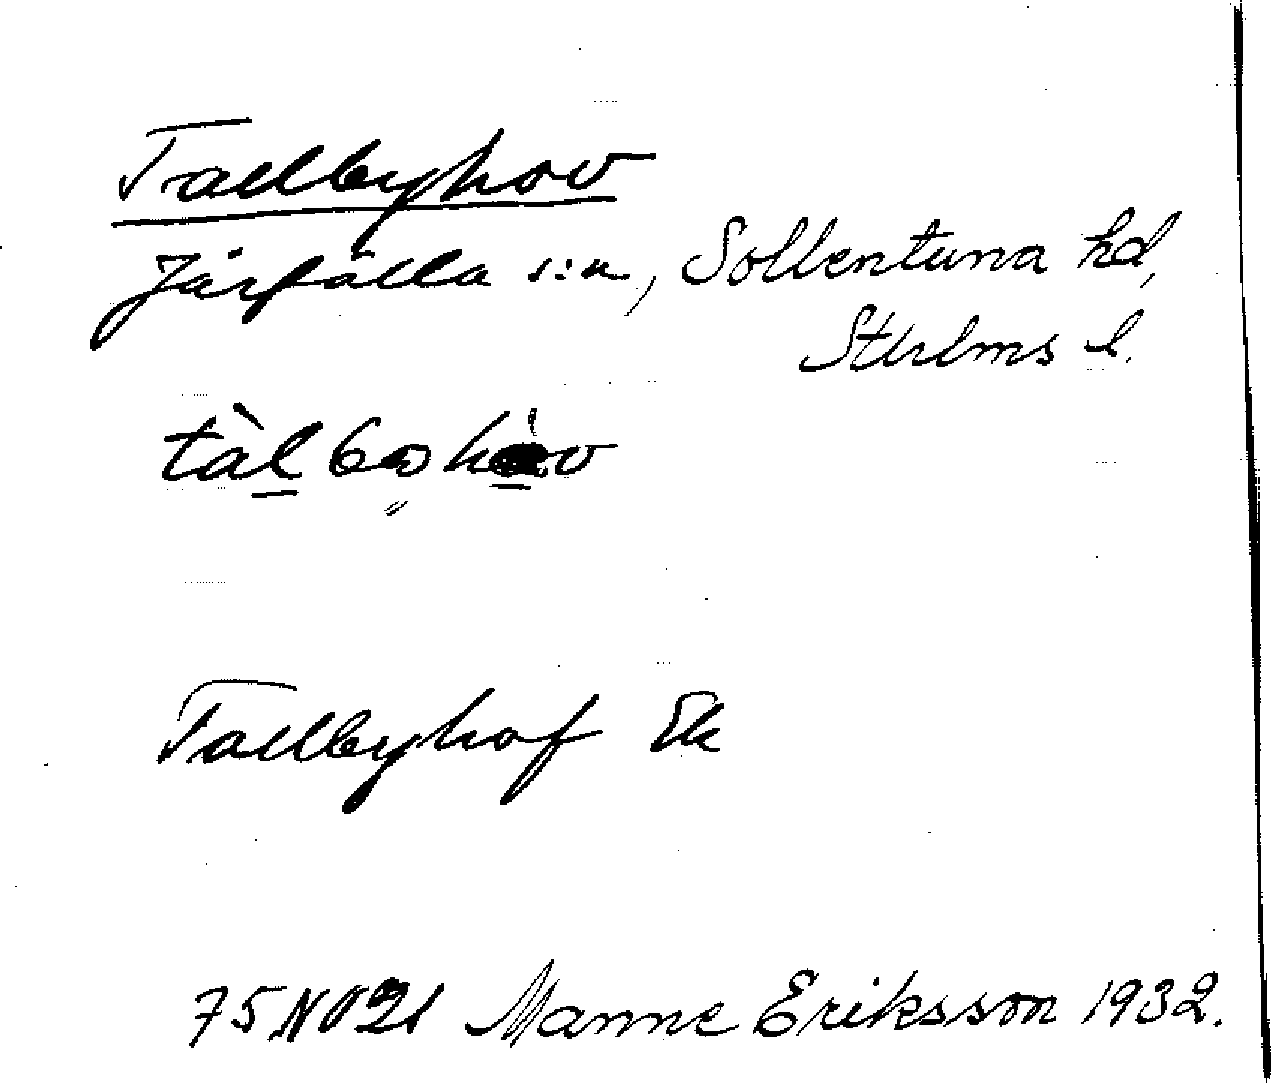 Tallbyhov
Järfälla s:n, Sollentuna hd,
Sthlms l.
Tallbyhof Ek
75 NV 21 Manne Eriksson 1932.